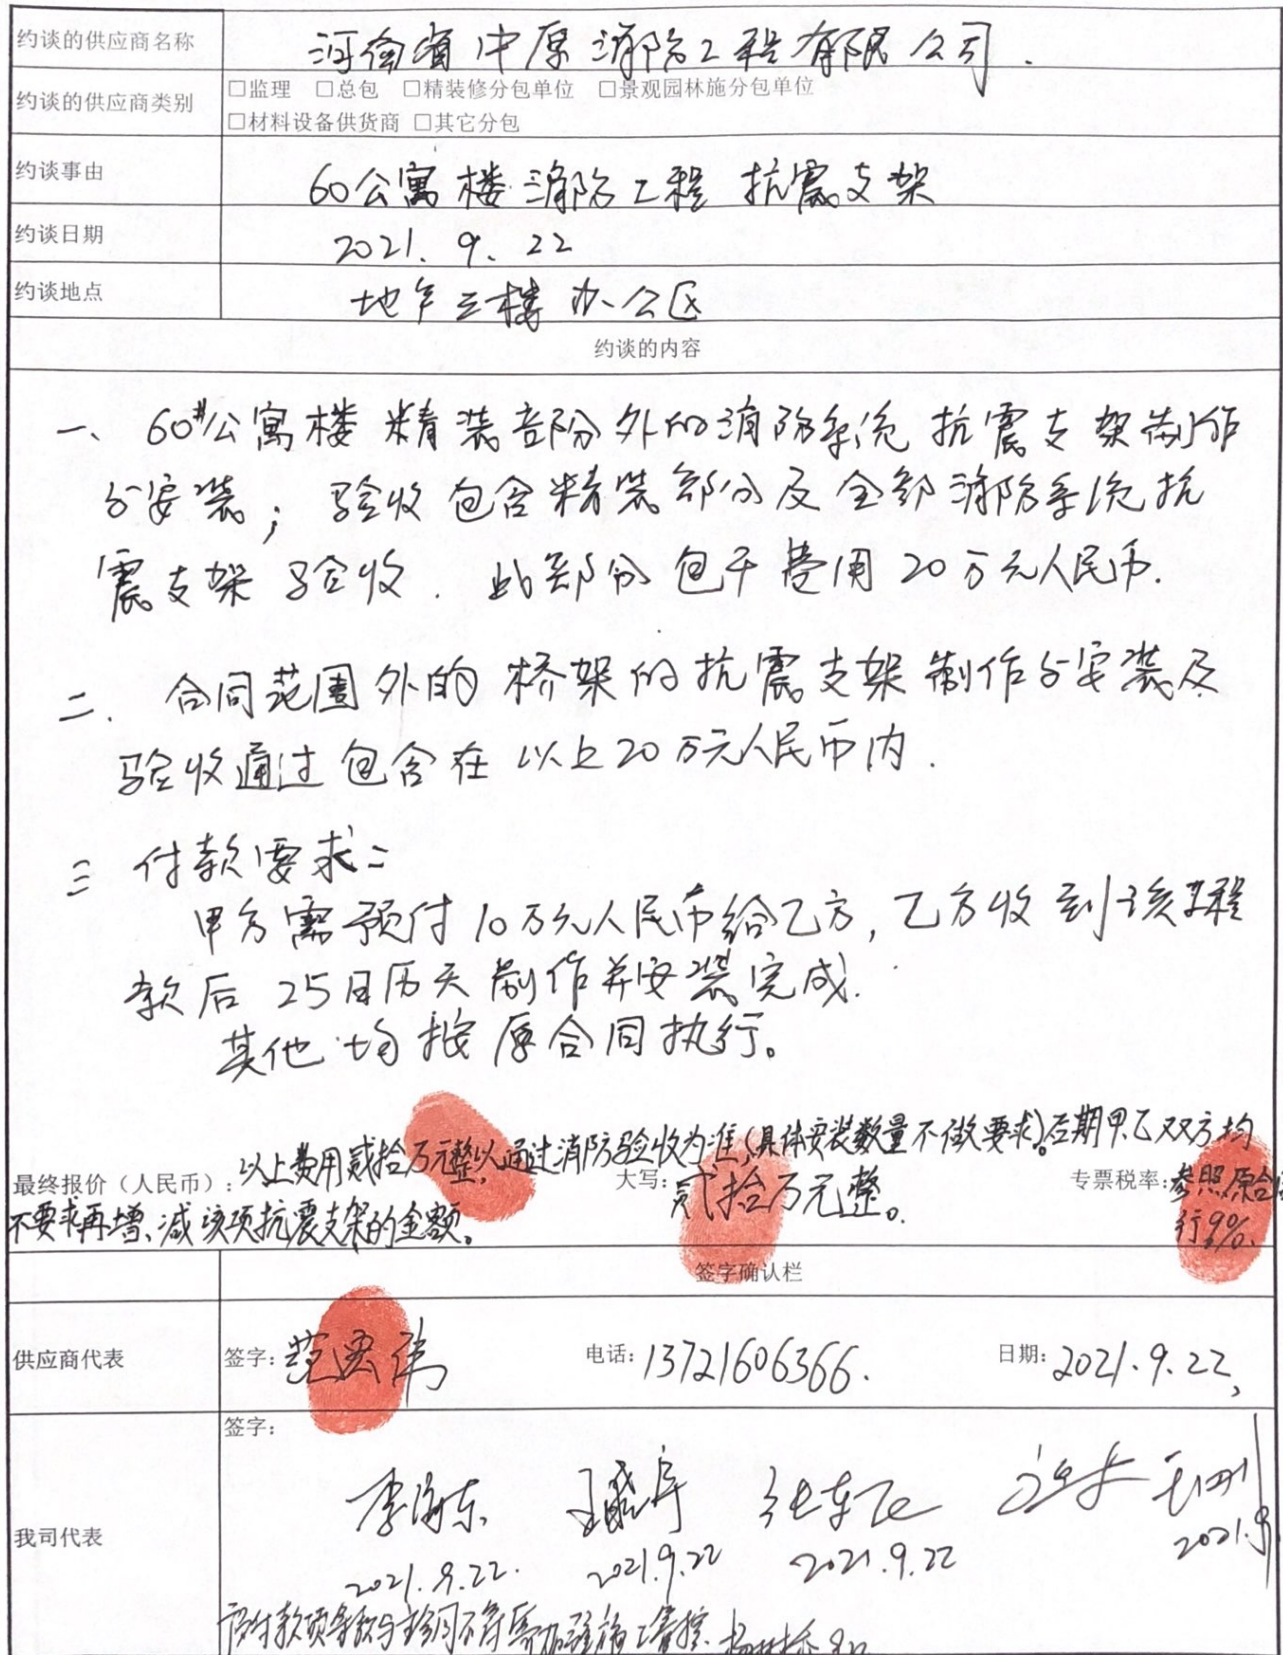 约谈的供应商名称 河南省中原消防工程有限公司.
约谈的供应商类别 □监理 □总包 □精装修分包单位 □景观园林施分包单位
□材料设备供货商 □其它分包
约谈事由 60公寓楼消防工程 抗震支架
约谈日期 2021. 9. 22
约谈地点 地产三楼办公区
约谈的内容
一、60#公寓楼精装部份外的消防系统抗震支架制作
与安装; 验收包含精装部分及全部消防系统抗
震支架验收. 此部分包干费用20万元人民币.
二. 合同范围外的桥架的抗震支架制作与安装及
验收通过包含在以上20万元人民币内.
三 付款要求:
甲方需预付10万元人民币给乙方, 乙方收到该工程
款后25日历天制作并安装完成.
其他均按原合同执行。
以上费用贰拾万元整,以通过消防验收为准,(具体安装数量不做要求)。后期甲.乙双方均
最终报价(人民币): 大写: 贰拾万元整。 专票税率: 参照原合同
不要求再增、减该项抗震支架的金额。 行9%.
签字确认栏
供应商代表 签字: 范 伟 电话: 13721606366. 日期: 2021.9.22,
签字:
我司代表 李海东
2021.9.22. 2021.9.22 2021.9.22 2021.9